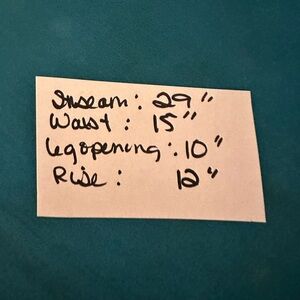 Inseam: 29"
Waist: 15"
Leg opening: 10"
Rise: 12"